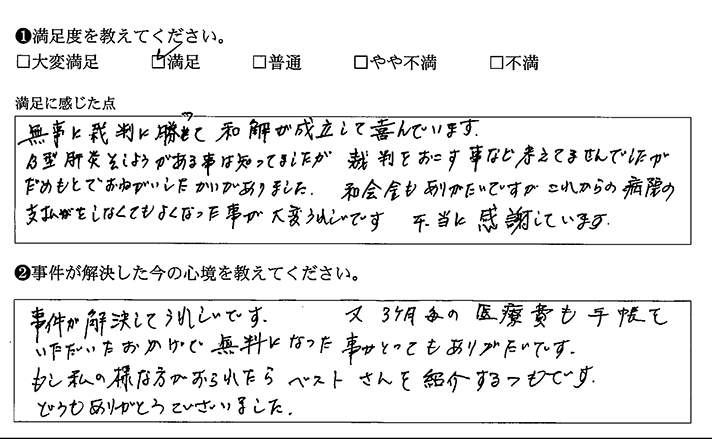 ❶満足度を教えてください。
□大変満足 ☑満足 □普通 □やや不満 □不満
満足に感じた点
無事に裁判に勝って 和解が成立して喜んでいます。
B型肝炎そしょうがある事は知ってましたが 裁判をおこす事など考えてませんでしたが
だめもとでおねがいしたかいがありました。 和会金もありがたいですが これからの病院の
支払がをしなくてもよくなった事が 大変うれしいです 本当に感謝しています。
❷事件が解決した今の心境を教えてください。
事件が解決してうれしいです。 又 3ヶ月毎の医療費も手帳を
いただいたおかげで無料になった事がとってもありがたいです。
もし私の様な方がおられたら ベストさんを紹介するつもです。
どうもありがとうございました。